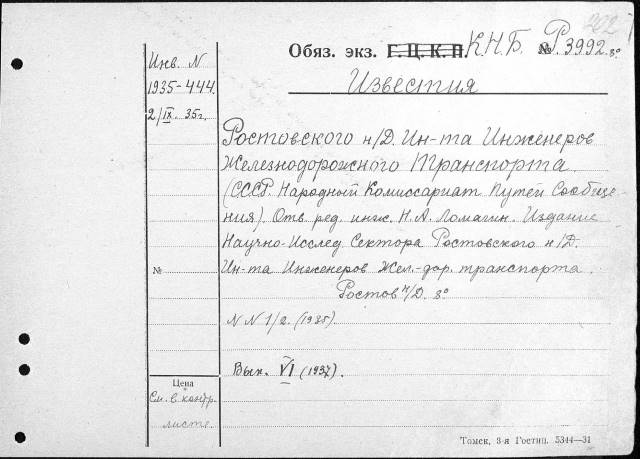 202
Обяз. экз. Г.Ц.К.П. К.Н.Б. № Р 3992. 8°
Известия
Инв. N
1935-444.
2/IX. 35 г.
Ростовского н/Д. Ин-та Инженеров
Железнодорожного Транспорта.
(СССР. Народный Комиссариат Путей Сообще-
ния). Отв. ред. инж. Н. А. Ломагин. Издание
Научно-Исслед. Сектора Ростовского н/Д.
№ Ин-та Инженеров Жел.-дор. транспорта.
Ростов н/Д. 8°
N N 1/2. (1935).
Вып. VI (1937).
Цена
См. в контр.
листе.
Томск, 3-я Гостип. 5344—31